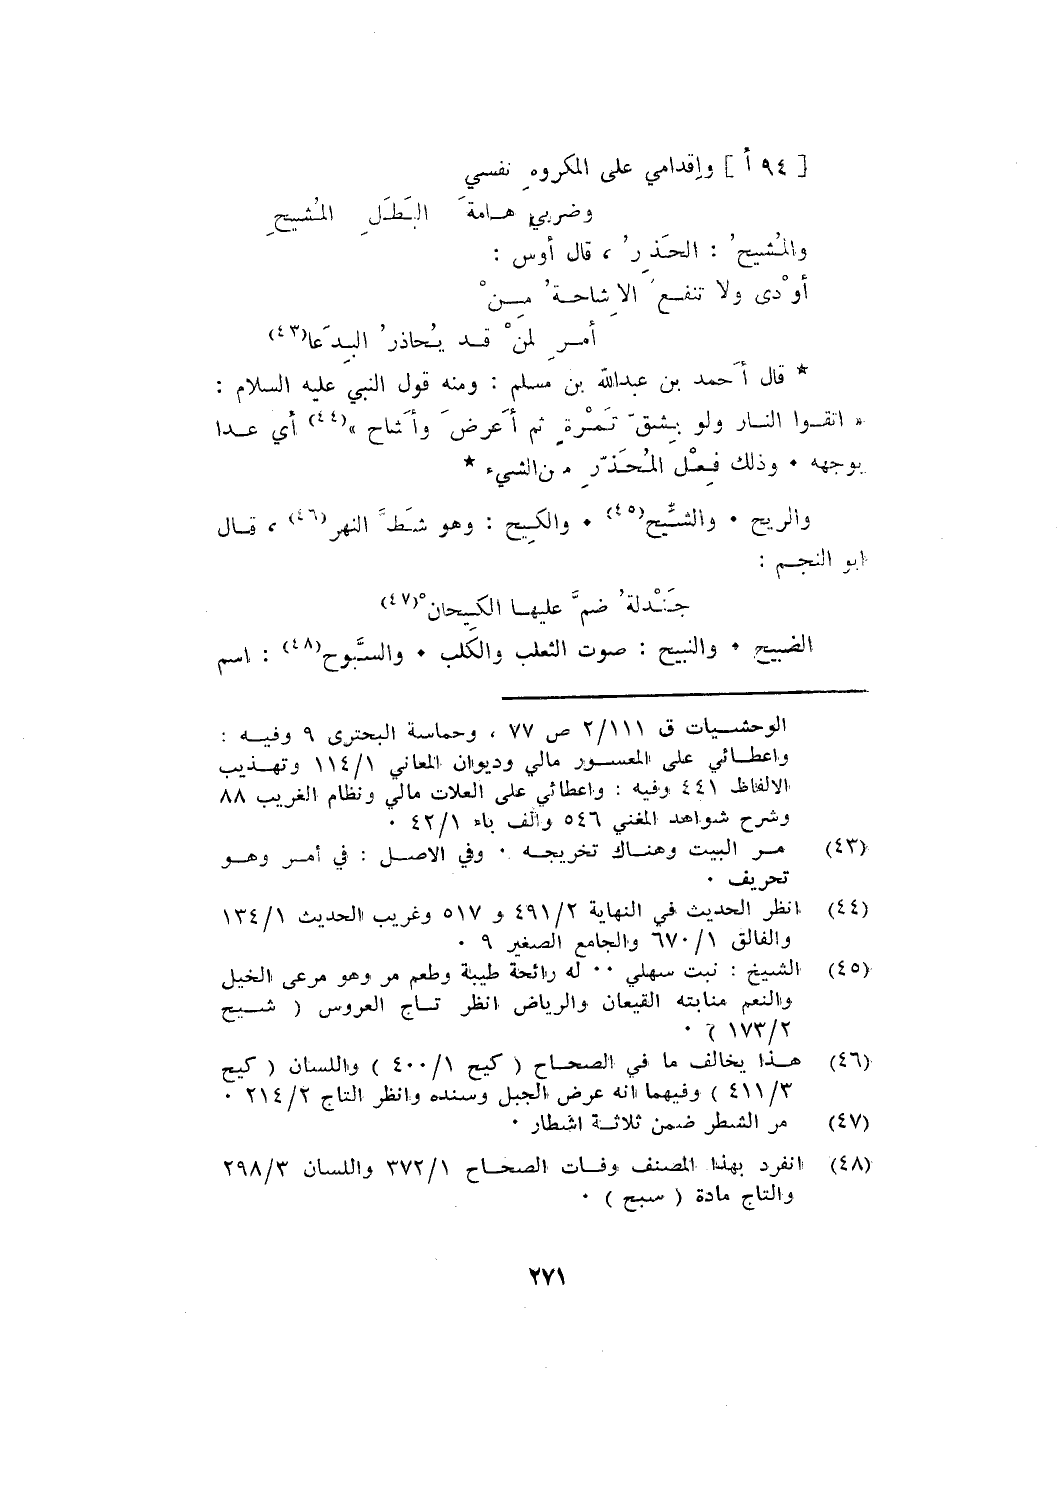 [ ٩٤ أ ] وإقدامي على المكروهِ نفسي
وضربي هـامةَ البَطَلِ المُشيحِ
والمُشيحُ : الحَذِرُ ، قال أوس :
أوْدى ولا تنفـعُ الاِشاحـةُ مِـنْ
أمـرٍ لمنْ قـد يُحاذرُ البِدَعا(٤٣)
* قال أَحمد بن عبدالله بن مسلم : ومنه قول النبي عليه السلام :
« اتقـوا النـار ولو بِشقّ تَمْرةٍ ثم أَعرضَ وأَشاح »(٤٤) أي عـدا
بوجهه . وذلك فِعْل المُحَذّرِ من الشيء *
والريح . والشِّيح(٤٥) . والكِيح : وهو شَطُّ النهر(٤٦) ، قـال
ابو النجـم :
جَنْدلةٌ ضمَّ عليهـا الكِيحانْ(٤٧)
الضبيح . والنبيح : صوت الثعلب والكلب . والسَّبوح(٤٨) : اسم
الوحشـيات ق ٢/١١١ ص ٧٧ ، وحماسة البحترى ٩ وفيـه :
واعطـائي على المعسـور مالي وديوان المعاني ١١٤/١ وتهـذيب
الالفاظ ٤٤١ وفيه : واعطائي على العلات مالي ونظام الغريب ٨٨
وشرح شواهد المغني ٥٤٦ والف باء ٤٢/١ .
(٤٣) مـر البيت وهنـاك تخريجـه . وفي الاصـل : في أمـر وهـو
تحريف .
(٤٤) انظر الحديث في النهاية ٤٩١/٢ و ٥١٧ وغريب الحديث ١٣٤/١
والفالق ٦٧٠/١ والجامع الصغير ٩ .
(٤٥) الشيخ : نبت سهلي .. له رائحة طيبة وطعم مر وهو مرعى الخيل
والنعم منابته القيعان والرياض انظر تـاج العروس ( شـيح
١٧٣/٢ ) .
(٤٦) هـذا يخالف ما في الصحـاح ( كيح ٤٠٠/١ ) واللسان ( كيح
٤١١/٣ ) وفيهما انه عرض الجبل وسنده وانظر التاج ٢١٤/٢ .
(٤٧) مر الشطر ضمن ثلاثـة اشطار .
(٤٨) انفرد بهذا المصنف وفـات الصحـاح ٣٧٢/١ واللسان ٢٩٨/٣
والتاج مادة ( سبح ) .
٢٧١